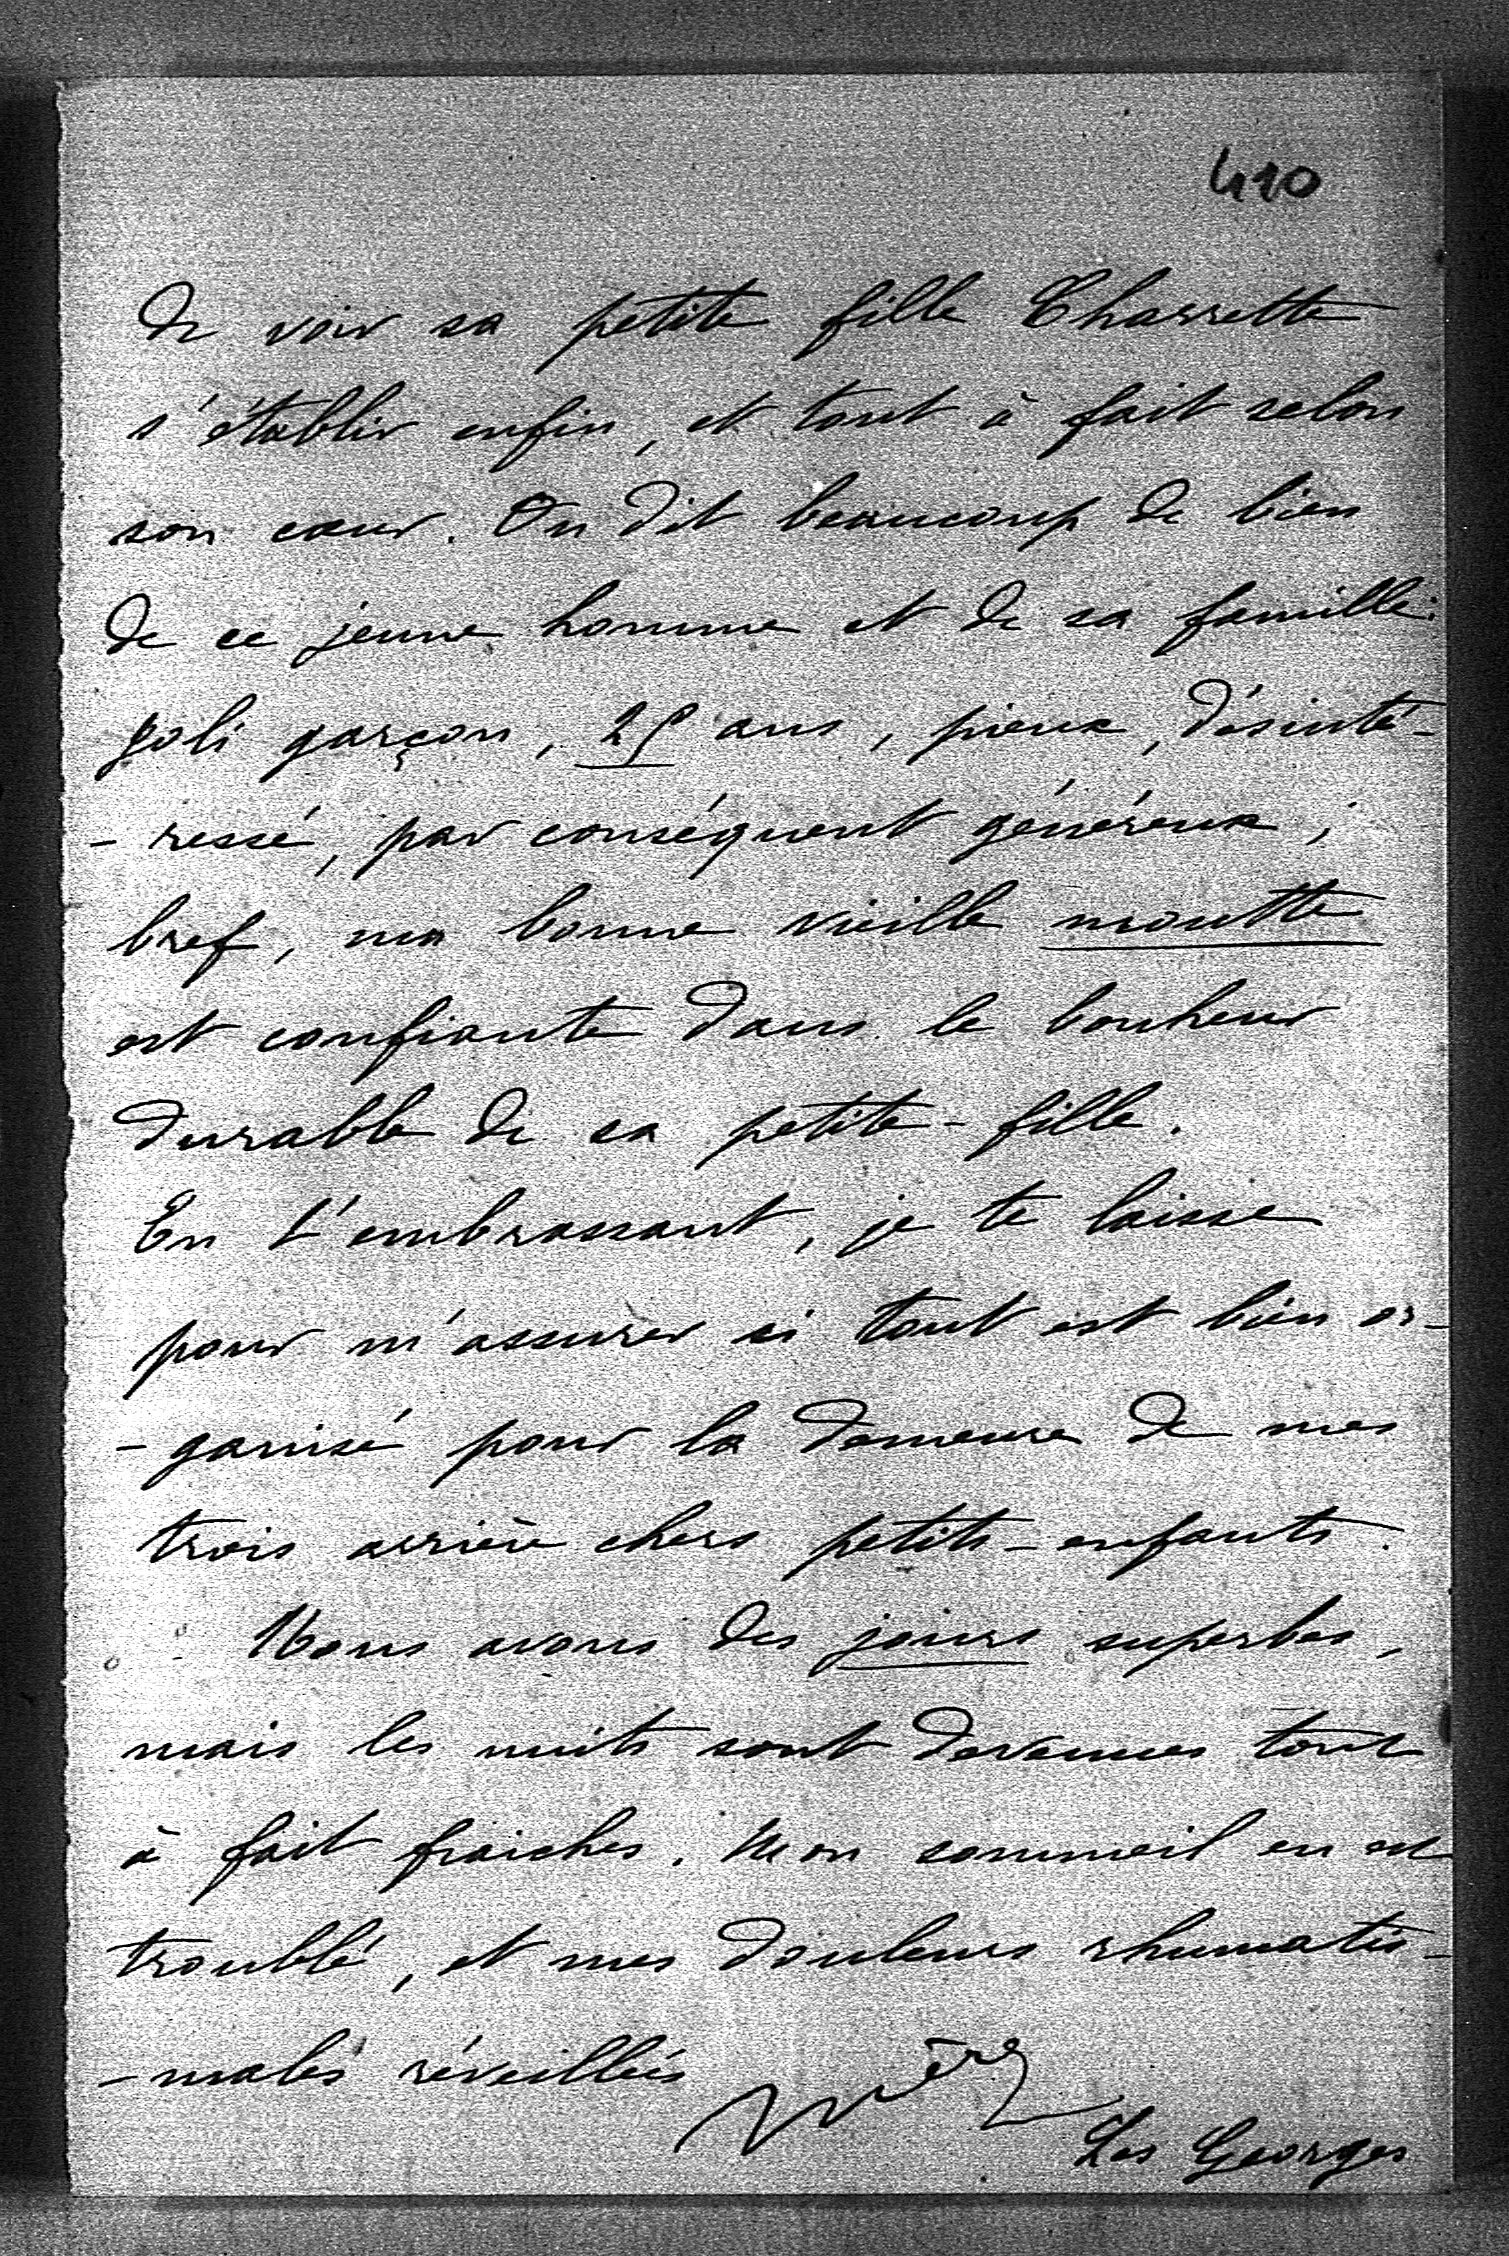 410
de voir sa petite fille Charrette
s'établir enfin, et tout à fait selon
son cœur. On dit beaucoup de bien
de ce jeune homme et de sa famille:
joli garçon, 25 ans, pieux, désinté-
-ressé, par conséquent généreux;
bref, ma bonne vieille moutte
est confiante dans le bonheur
durable de sa petite-fille.
En t'embrassant, je te laisse
pour m'assurer si tout est bien or-
-ganisé pour la demeure de mes
trois arrière chers petits-enfants.
Nous avons des jours superbes,
mais les nuits sont devenues tout
à fait fraiches. Mon sommeil en est
troublé, et mes douleurs rhumatis-
-males réveillées
Mère
Les Georges